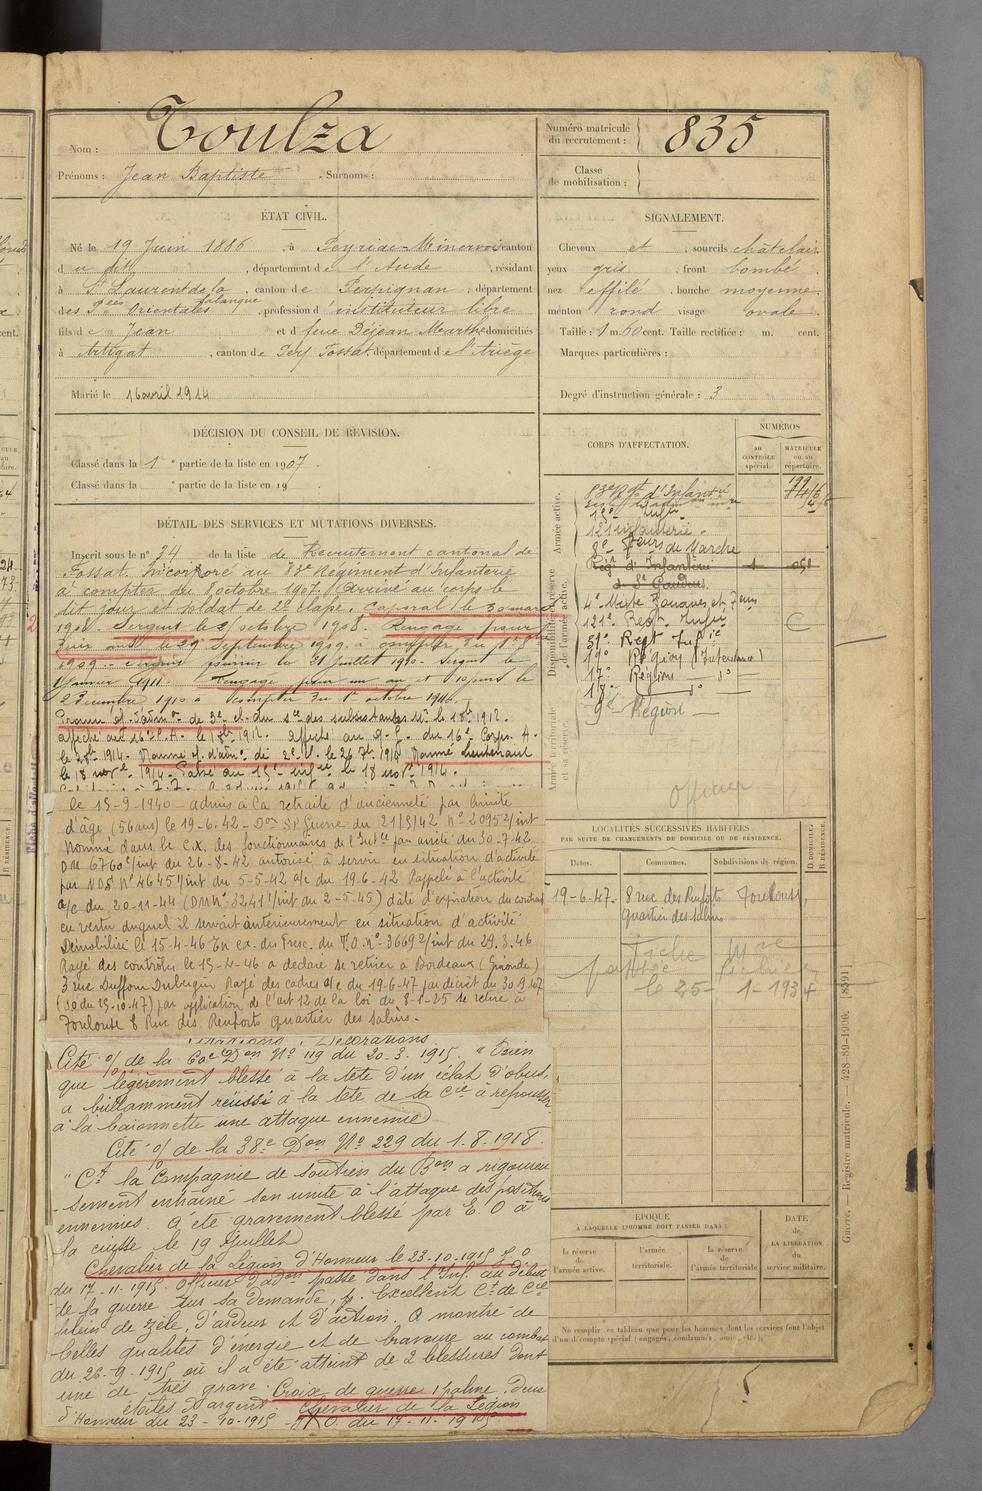 Nom : Toulza
Prénoms : Jean Baptiste . Surnoms :
Numéro matricule du recrutement : 835
Classe de mobilisation :
ÉTAT CIVIL.
Né le 19 Juin 1886 , à Peyriac-Minervois canton
d u dit , département d e l'Aude , résidant
à St Laurent de la Salanque , canton d e Perpignan , département
des Pées Orientales , profession d' instituteur libre
fils d e Jean et d e feue Déjean Marthe domiciliés
à Artigat , canton d e Fossat, département d e l'Ariège
Marié le 16 avril 1914
SIGNALEMENT.
Cheveux et , sourcils châtclair
yeux gris , front bombé
nez effilé , bouche moyenne
menton rond visage ovale
Taille : 1 m. 60 cent. Taille rectifiée : m. cent.
Marques particulières :
Degré d'instruction générale : 3
DÉCISION DU CONSEIL DE RÉVISION.
Classé dans la 1e partie de la liste en 1907 .
Classé dans la e partie de la liste en 19
DÉTAIL DES SERVICES ET MUTATIONS DIVERSES.
Inscrit sous le n° 34 de la liste de Recrutement cantonal de
Fossat. Incorporé au 83e Régiment d'Infanterie
à compter du 8 octobre 1907. Arrivé au corps le
dit jour et soldat de 2e classe. Caporal le 30 mars
1908. Sergent le octobre 1908. Rengagé pour
le 29 Septembre 1909 à compter du 1er
1909. Sergent fourrier le 21 juillet 1910. Sergent le
1 Janvier 1911. Rengagé pour un an et
2 Décembre 1910 à compter du 1er octobre
Promu of. d'adm. de 3e cl. du sce des subsistances le 1912.
affecté au 16e C.A. le 1912. affecté au Q.G. du 16e Corps. A.
le 1914. Nommé of. d'adm. de 2e cl. le 26 1914 Nommé Lieutenant
le 18 nov. 1914. Passé au 15e inf. le 18 nov. 1914.
le 15-9-1940 - admis à la retraite d'ancienneté par limite
d'âge (56 ans) le 19-6-42 - Don SP. Guerre du 21/5/42 N° 20952/int
Nommé dans le C.X. des fonctionnaires de l'Intce par arrêté du 30-7-42
DM 6760/int du 26-8-42 autorisé à servir en situation d'activité
par NDS N° 4645/int du 5-5-42 a/c du 19-6-42 Rappelé à l'activité
a/c du 20-11-44 (DM N° 3241/int du 2-5-45) date d'expiration du contrat
en vertu duquel il servait antérieurement en situation d'activité
Démobilisé le 15-4-46 En ex. des Presc. du T.O. N° 36692/int du 29.3.46
Rayé des contrôles le 15-4-46 a déclaré se retirer à Bordeaux (Gironde)
3 rue Duffour Dubergier Rayé des cadres a/c du 19-6-47 par décret du 30.9.47
(J.O du 15-10-47) par application de l'art 12 de la loi du 8-1-25 se retire à
Toulouse 8 Rue des Renforts quartier des Salins.
Citations, Décorations
Cité o/ de la 60e Don N° 119 du 20.3.1915. "Bien
que légèrement blessé à la tête d'un éclat d'obus,
a brillamment réussi à la tête de sa Cie à repousser
à la baïonnette une attaque ennemie
Cité o/ de la 38e Don N° 229 du 1.8.1918.
"Ct la Compagnie de soutien du Bon a rigoureu
sement entraîné son unité à l'attaque des positions
ennemies. A été gravement blessé par E.O à
la cuisse le 19 Juillet
Chevalier de la Légion d'Honneur le 23-10-1915 J.O
du 17-11-1915. Officier d'adon passé dans l'Inf. au début
de la guerre sur sa demande, Excellent Ct de Cie
plein de zèle, d'ardeur et d'action. A montré de
belles qualités d'énergie et de bravoure au combat
du 26-9-1915 où il a été atteint de 2 blessures dont
une de très grave. Croix de guerre 1 palme. Deux
étoiles d'argent. Chevalier de la Légion
d'Honneur du 23-10-1915 J.O. du 17-11-1915
CORPS D'AFFECTATION.
NUMÉROS
au CONTRÔLE spécial.
MATRICULE ou au répertoire.
Armée active.
83e Rgt d'Infanterie
15e Infie
121 infanterie
8e Teurs de Marche
Disponibilité et réserve de l'armée active.
Régt d'Infanterie
de St Gaudens
4e Mixte Zouaves et Teurs
121e Regt Infie C
51e Regt Infie
Région (Intendance)
17e Région
18e do
Armée territoriale et sa réserve.
9e Région
Officier
LOCALITÉS SUCCESSIVES HABITÉES
PAR SUITE DE CHANGEMENTS DE DOMICILE OU DE RÉSIDENCE.
Dates. Communes. Subdivisions de région. D DOMICILE. R RÉSIDENCE.
19-6-47. 8 rue des Renforts Toulouse
Quartier des Salins
Fiche
le 25-1-1934
ÉPOQUE
À LAQUELLE L'HOMME DOIT PASSER DANS :
la réserve de l'armée active.
l'armée territoriale.
la réserve de l'armée territoriale
DATE de LA LIBÉRATION du service militaire.
Ne remplir ce tableau que pour les hommes dont les services font l'objet
d'un décompte spécial (engagés, condamnés, omis, etc.).
Guerre. — Registre matricule. — 428-89-1906. [8591]